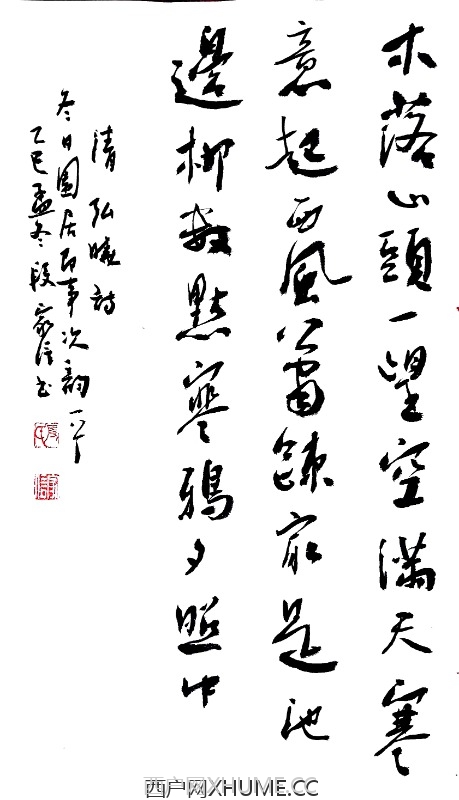 木落山頭一望空滿天寒
意起西風蕭疎最是池
邊柳數點寒鴉夕照中
清弘曕詩
冬日園居即事次韵一首
乙巳孟冬段家信书
西户网XHUME.CC